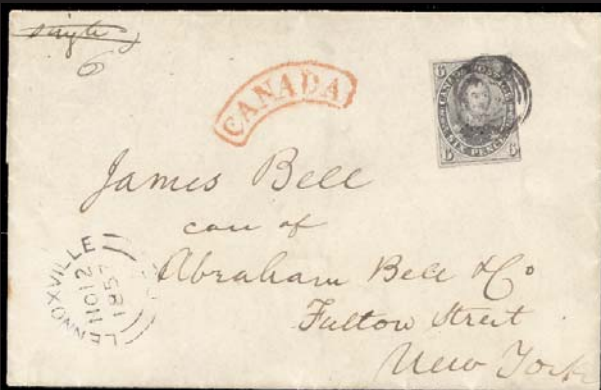 single
6
CANADA
6 CANADA POSTAGE 6
SIX PENCE
6 6
James Bell
care of
Abraham Bell & Co
Fulton Street
New York
LENNOXVILLE
1857